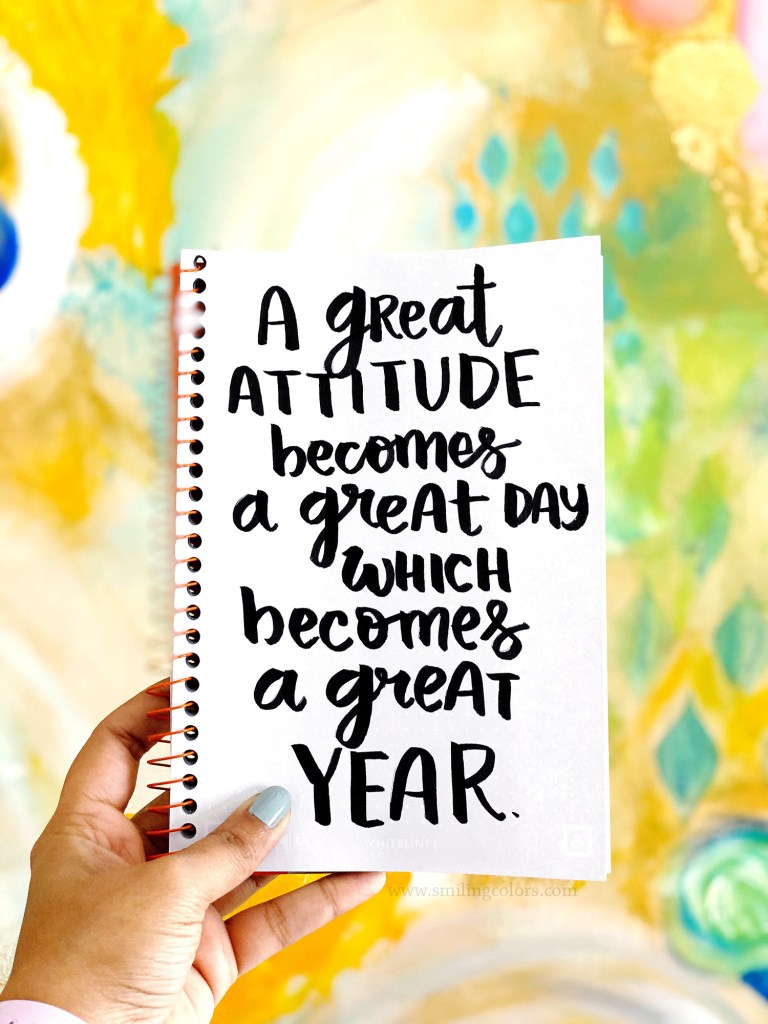 A great
ATTITUDE
becomes
a great DAY
WHICH
becomes
a great
YEAR.
WHITELINES
www.smilingcolors.com